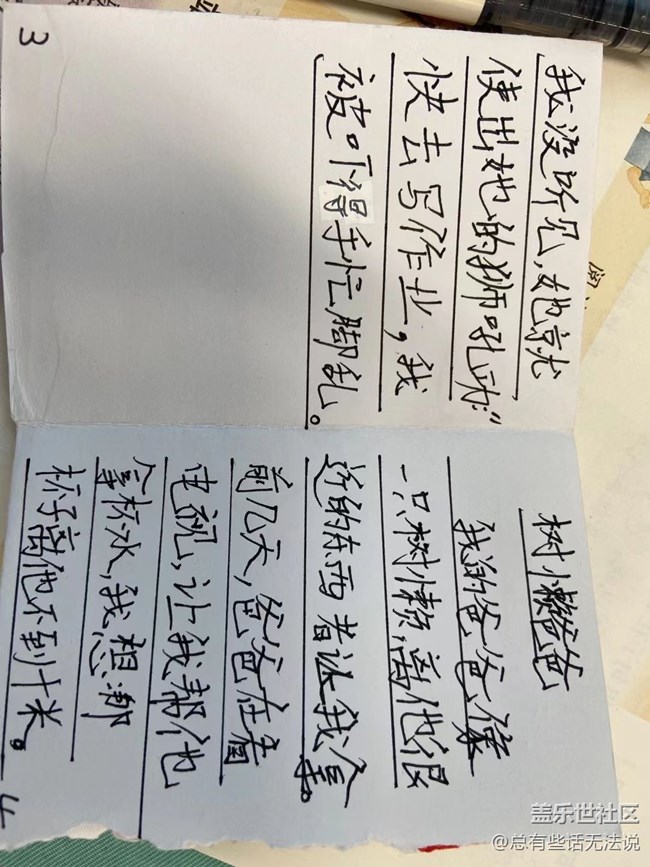 我没听见,她就
使出她的狮吼功:“
快去写作业,我
被吓得手忙脚乱。
3
树懒爸爸
我的爸爸像
一只树懒,离他很
近的东西都让我拿。
前几天,爸爸在看
电视,让我帮他
拿杯水,我想那
杯子离他不到十米。
4
盖乐世社区
@总有些话无法说